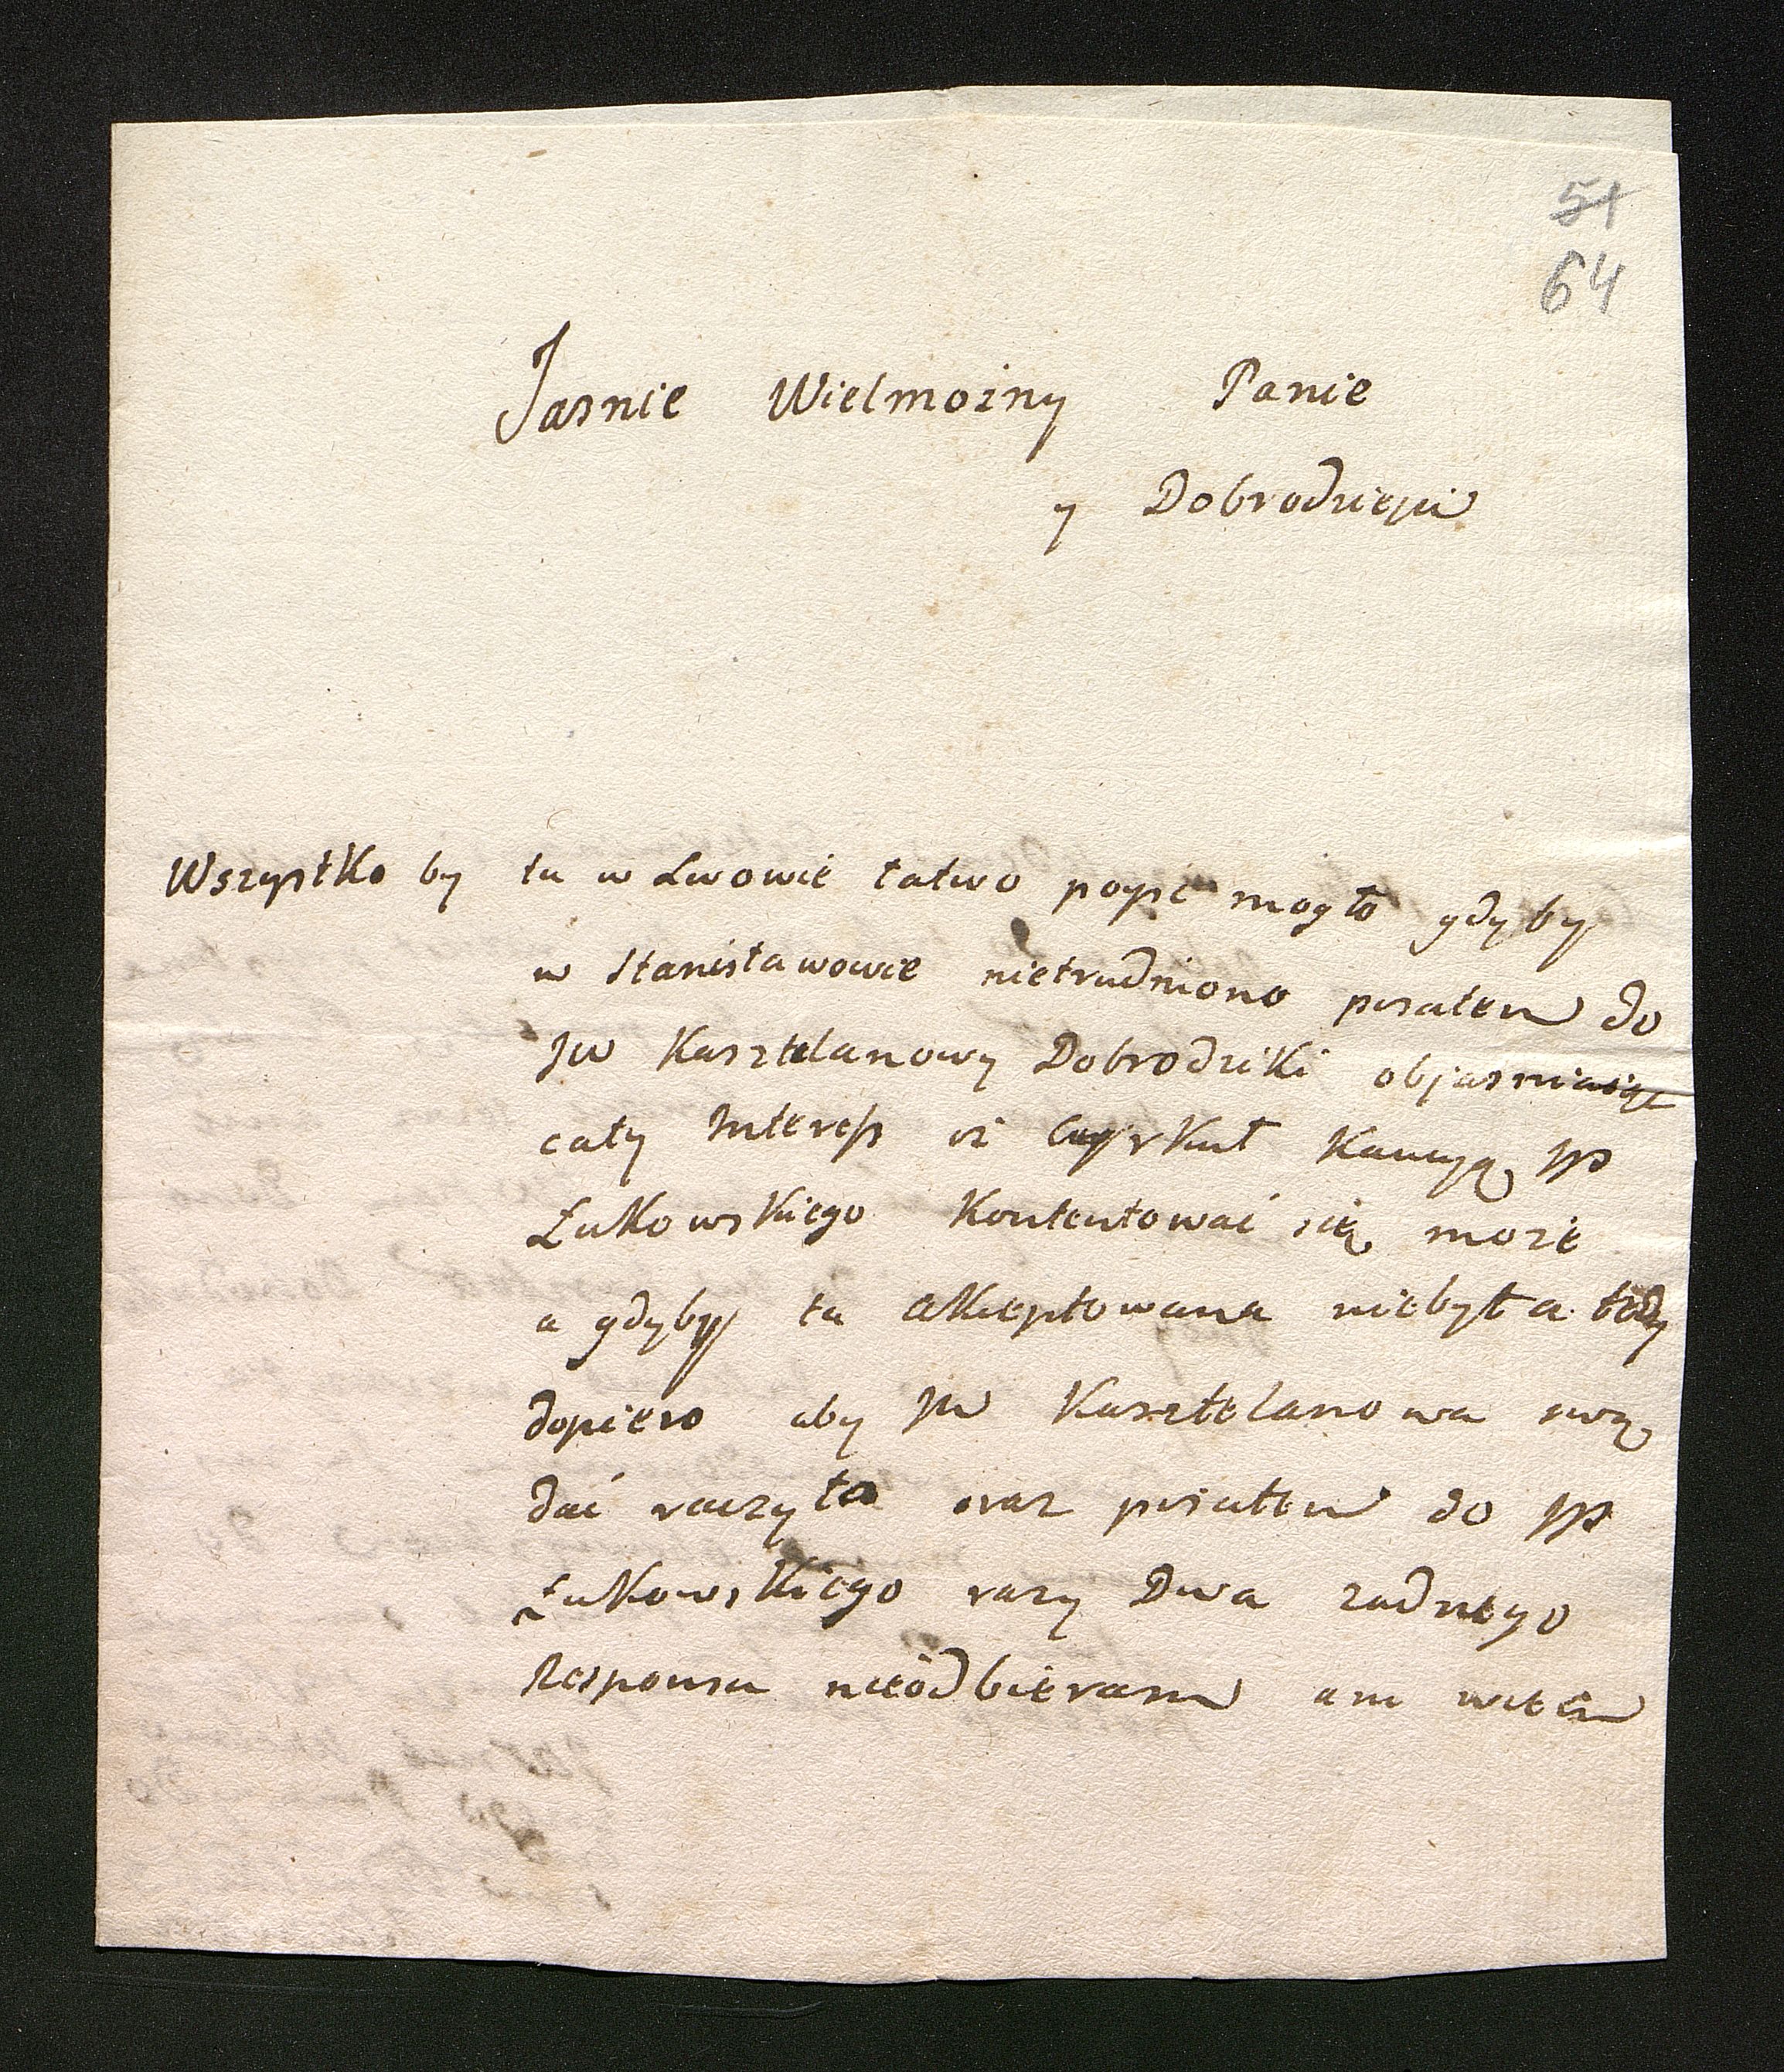 51
64
Jasnie Wielmożny Panie
y Dobrodzieju
Wszystko by tu w Lwowie łatwo pojść mogło gdyby
w Stanisławowie nietrudniono pisałem do
JW Kasztelanowy Dobrodziki objasniając
cały Interess iż Cyrkuł Kaucyą JP
Łukowskiego kontentować się może
a gdyby ta akceptowana niebyła tedy
dopiero aby JW Kasztelanowa swą
dać raczyła oraz pisałem do JP
Łukowskiego razy Dwa zadnego
Responsu nieodbieram ani wiem